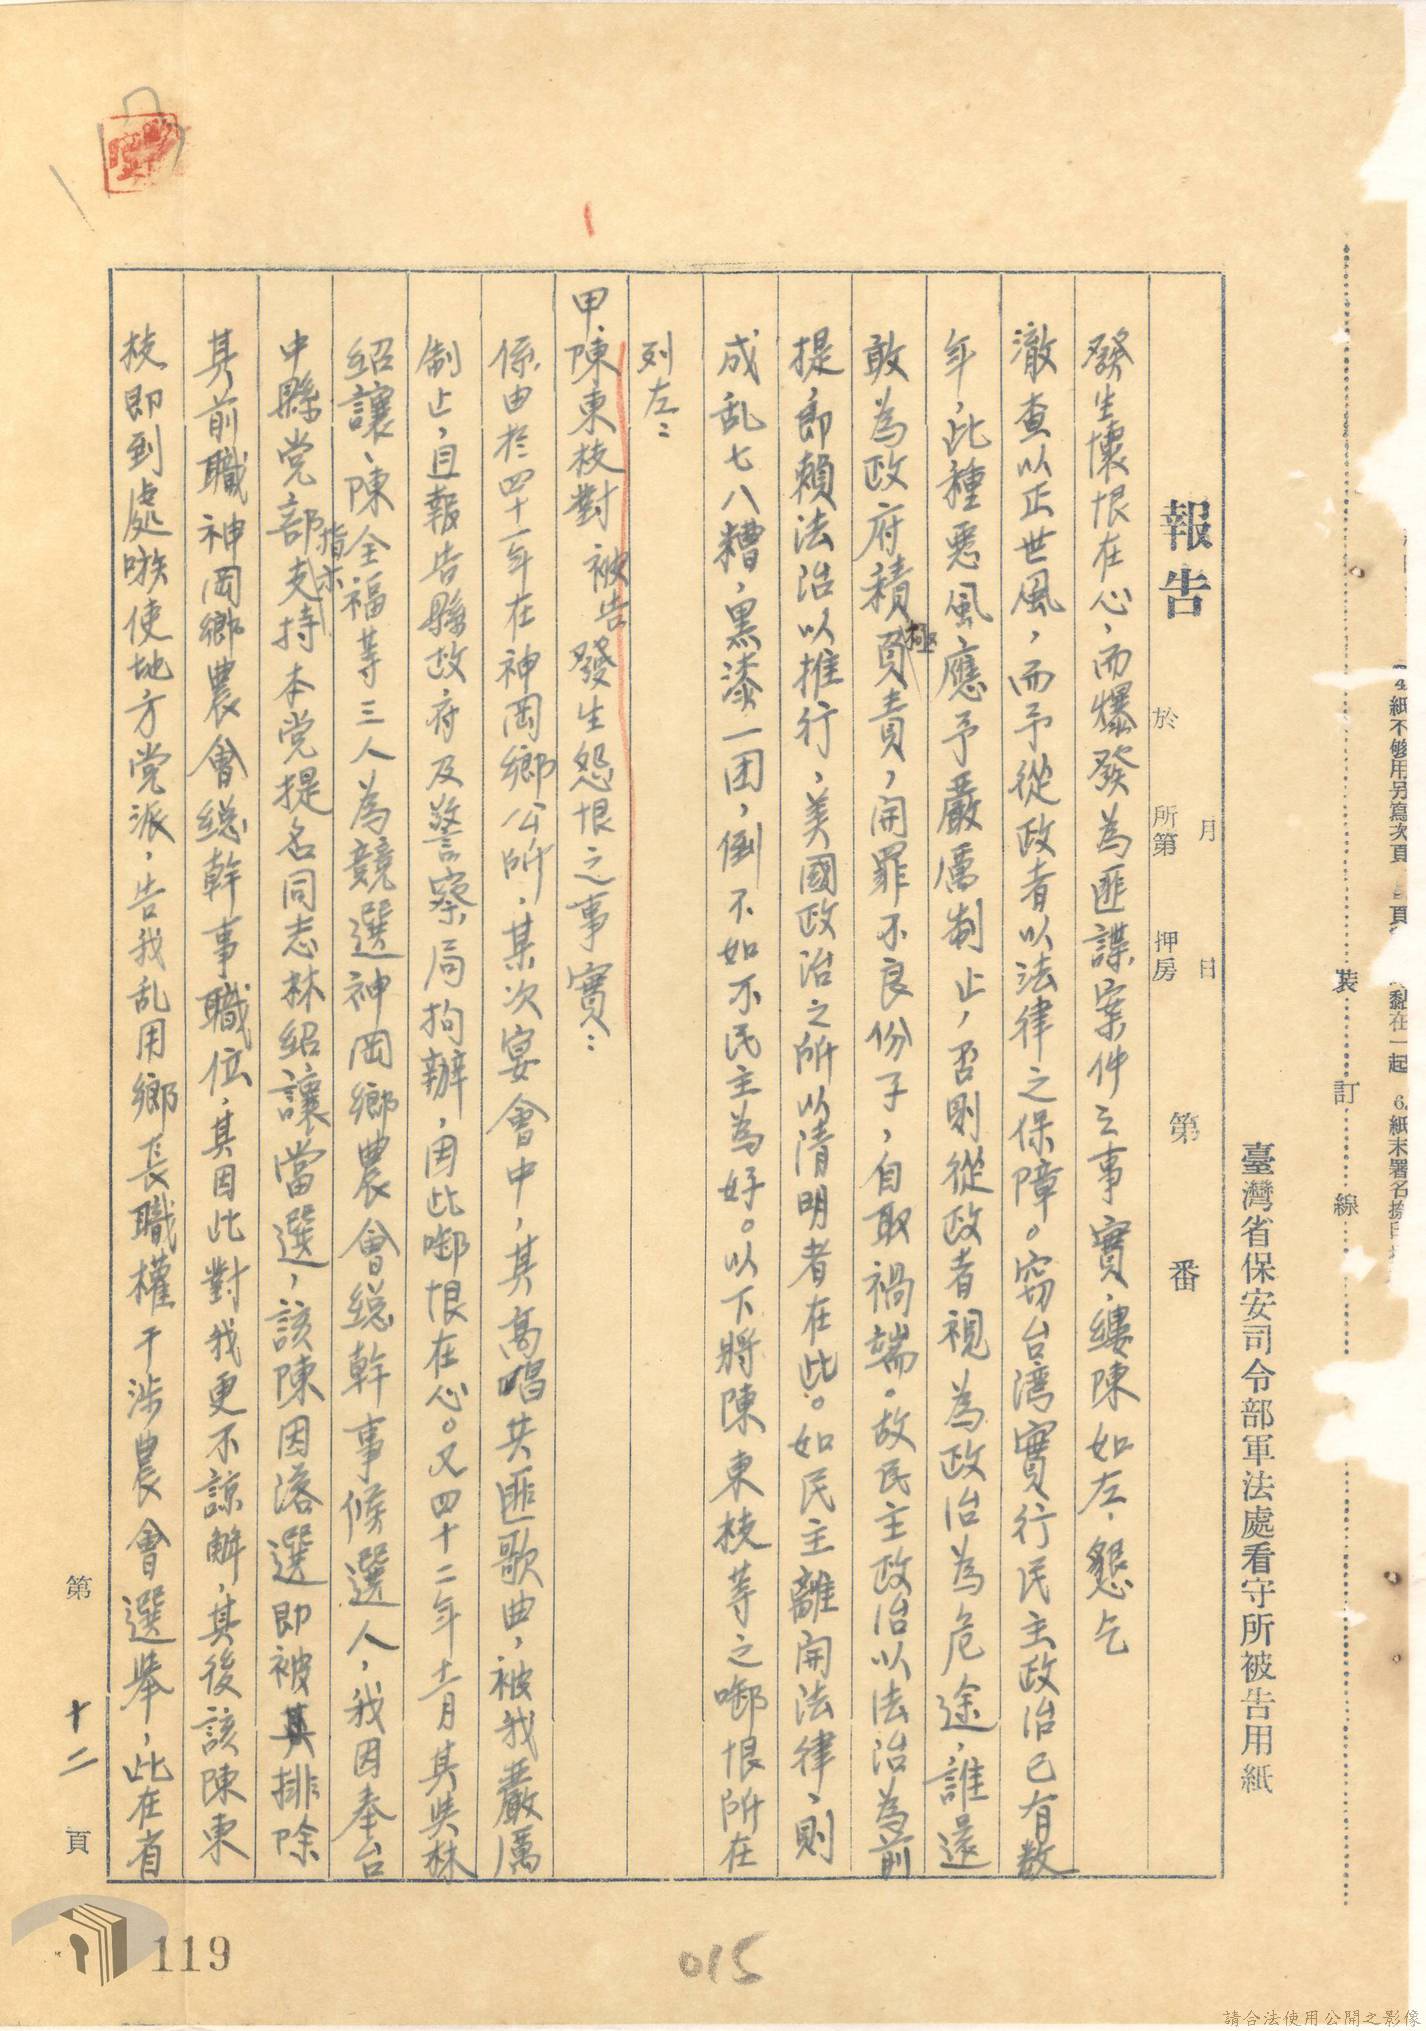 4 紙不够用另寫次頁
黏在一起
6. 紙末署名捺印
裝 訂 線
臺灣省保安司令部軍法處看守所被告用紙
報告
月 日
於 所第 押房
第 番
發生懷恨在心，而爆發為匪諜案件之事實，縷陳如左，懇乞
澈查以正世風，而予從政者以法律之保障。窃台湾實行民主政治已有数
年，此種惡風應予嚴厲制止，否則從政者視為政治為危途，誰還
敢為政府積極負責，開罪不良份子，自取禍端。故民主政治以法治為前
提，郎賴法治以推行，美國政治之所以清明者在此。如民主離開法律，則
成乱七八糟，黑漆一团，倒不如不民主為好。以下將陳東枝等之啣恨所在
列左：
甲陳東枝對被告發生怨恨之事實：
係由於四十一年在神岡鄉公所，某次宴會中，其高唱共匪歌曲，被我嚴厲
制止，且報告縣政府及警察局拘辦，因此啣恨在心。又四十二年十一月其與林
紹讓、陳全福等三人為競選神岡鄉農會総幹事候選人，我因奉台
中縣党部指示支持本党提名同志林紹讓當選，該陳因落選即被其排除
其前職神岡鄉農會総幹事職位，其因此對我更不諒解，其後該陳東
枝即到處嗾使地方党派，告我乱用鄉長職權干涉農會選舉，此在省
第 十二 頁
119
015
請合法使用公開之影像